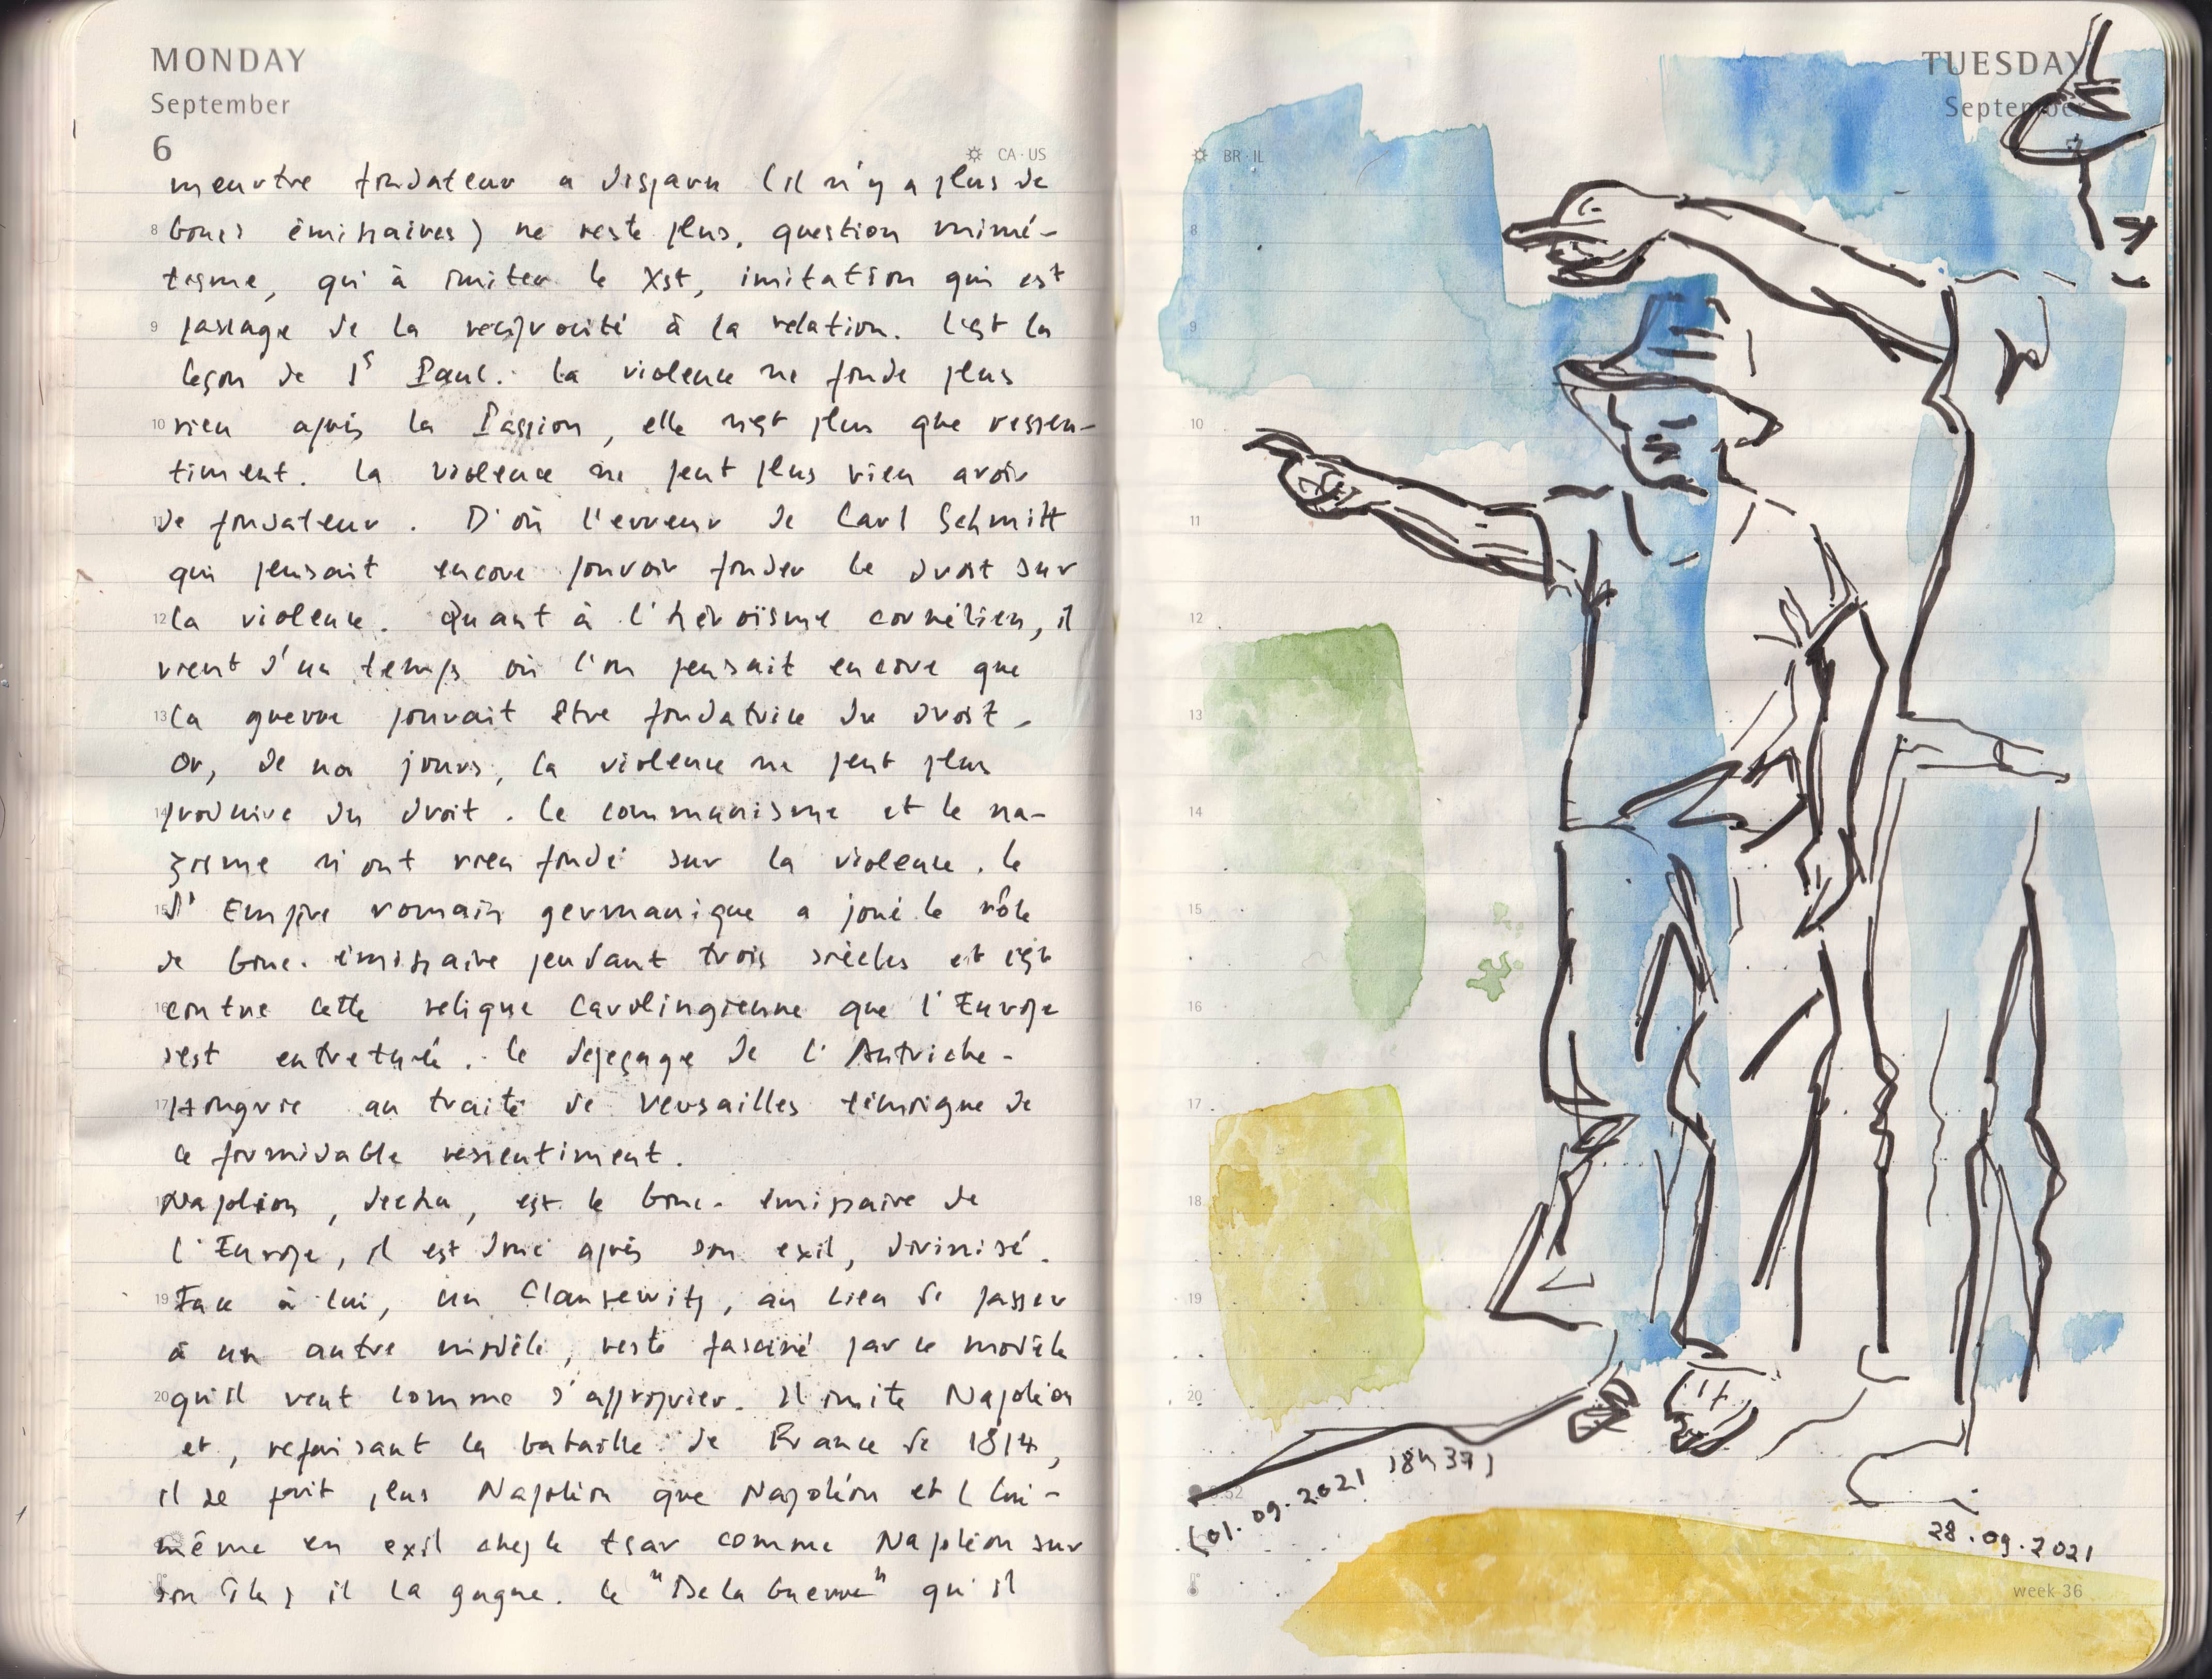 MONDAY
September
6
CA·US
meurtre fondateur a disparu (il n'y a plus de
8 boucs émissaires) ne reste plus, question mimé-
tisme, qu'à imiter le Xst, imitation qui est
9 passage de la réciprocité à la relation. C'est la
leçon de St Paul. La violence ne fonde plus
10 rien après la Passion, elle n'est plus que ressen-
timent. La violence ne peut plus rien avoir
11 de fondateur. D'où l'erreur de Carl Schmitt
qui pensait encore pouvoir fonder le droit sur
12 la violence. Quant à l'héroïsme cornélien, il
vient d'un temps où l'on pensait encore que
13 la guerre pouvait être fondatrice du droit.
Or, de nos jours, la violence ne peut plus
14 produire du droit. Le communisme et le na-
zisme n'ont rien fondé sur la violence. Le
15 St Empire romain germanique a joué le rôle
de bouc-émissaire pendant trois siècles et c'est
16 contre cette relique carolingienne que l'Europe
s'est entretuée. Le dépeçage de l'Autriche-
17 Hongrie au traité de Versailles témoigne de
ce formidable ressentiment.
Napoléon, déchu, est le bouc-émissaire de
l'Europe, il est donc après son exil, divinisé.
19 Face à lui, un Clausewitz, au lieu de passer
à un autre modèle, reste fasciné par le modèle
20 qu'il veut comme s'approprier. Il imite Napoléon
et, refaisant la bataille de France de 1814,
il se fait plus Napoléon que Napoléon et (lui-
même en exil chez le tsar comme Napoléon sur
son île) il la gagne. Le "De la Guerre" qu'il
TUESDAY
September
BR·IL
8
9
10
11
12
13
14
15
16
17
18
19
20
(01.09.2021 18h37)
28.09.2021
week 36